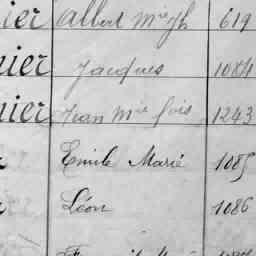 ier Albert Mie Jh 619
nier Jacques 1084
nier Jean Mie fois 1243
Emile Marie 1085
Léon 1086